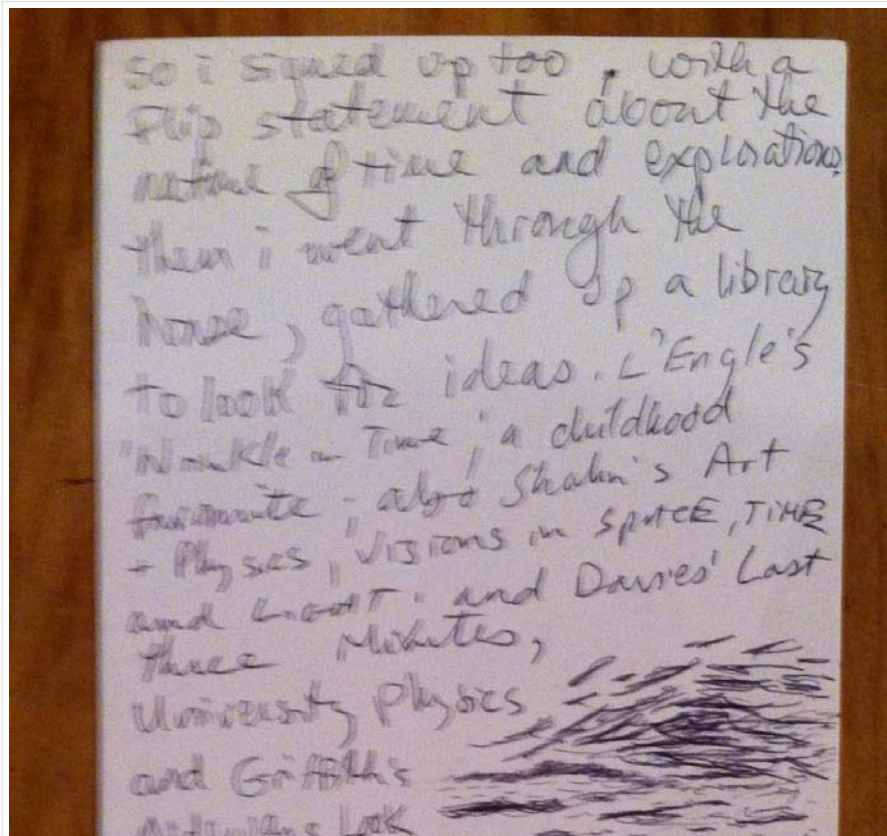 so i signed up too, with a
flip statement about the
nature of time and explorations.
then i went through the
house, gathered up a library
to look for ideas. L'Engle's
'Wrinkle in Time', a childhood
favourite; also Shlain's Art
+ Physics, Visions in SPACE, TIME
and LIGHT. and Davies' Last
three Minutes,
University Physics
and Griffith's
look